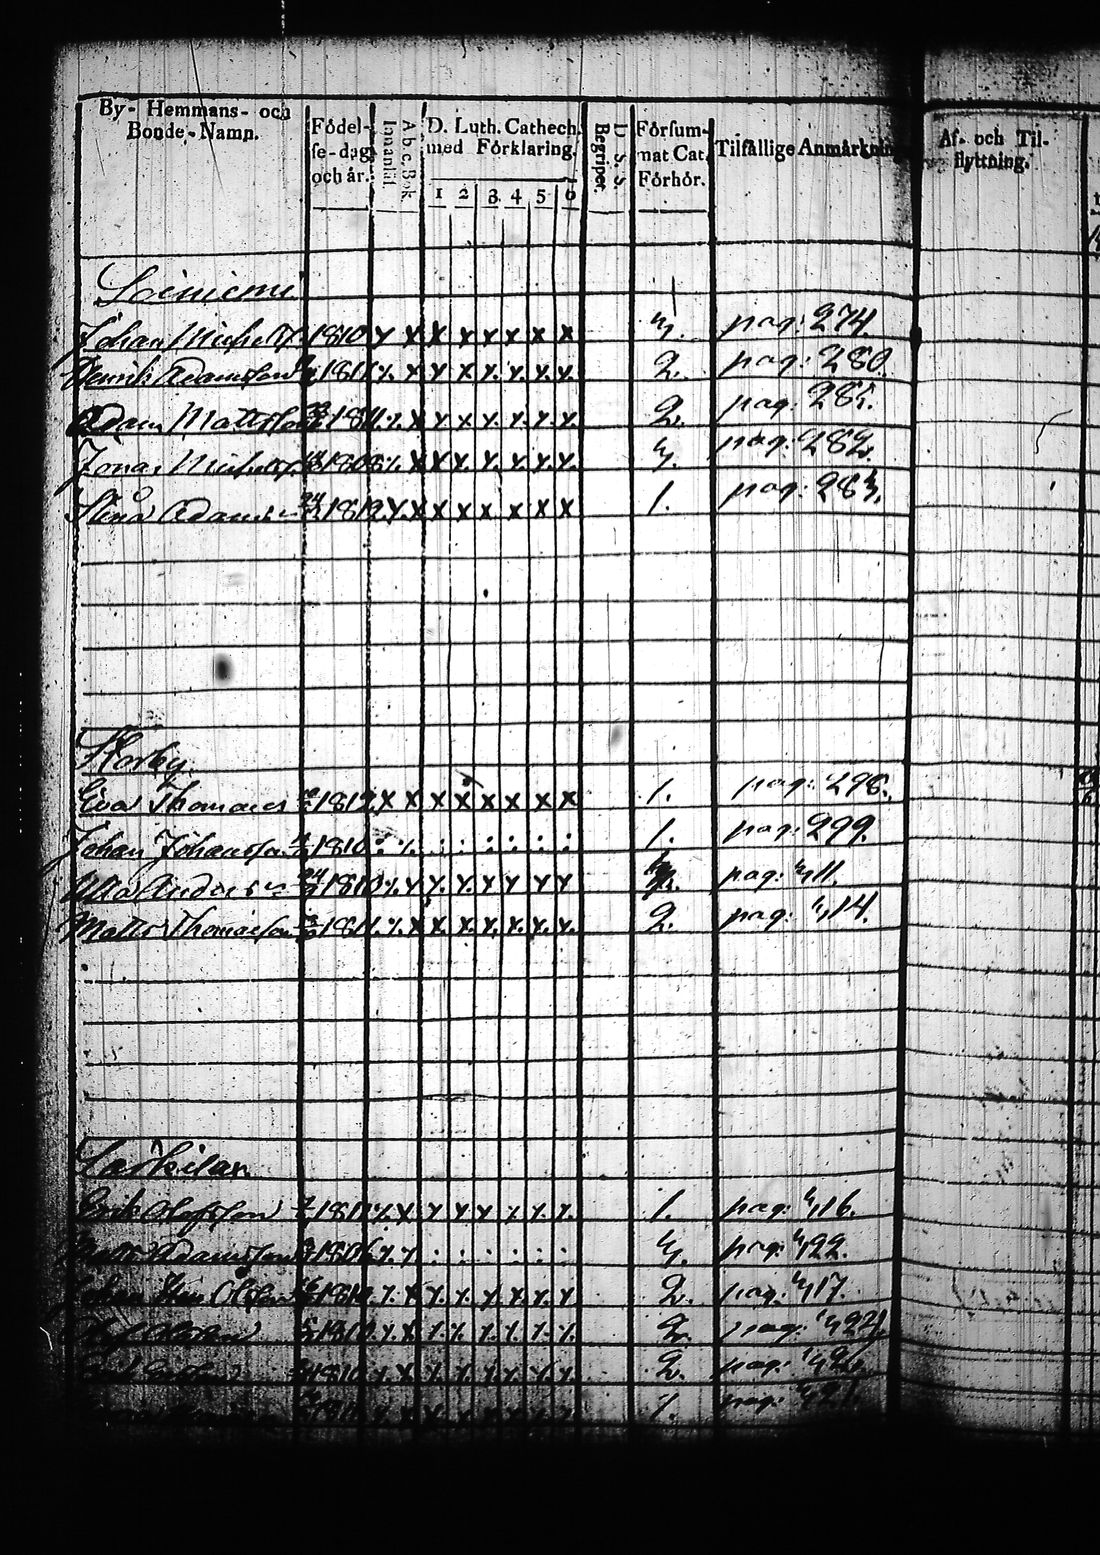 By- Hemmans- och Bonde-Namn. Födel-se-dag och år. A b c Bok Innantil. D. Luth. Cathech. med Förklaring. 1 2 3 4 5 6 D. S. S. Begripet. Försum-mat Cat. Förhör. Tilfällige Anmärkning Af- och Til-flyttning.
Loiniemi
Johan Michelss 1810 x x x x x x x x 4. pag: 274.
Henrik Adamsson 1811 x. x x x x. x. x. x. 2. pag: 280.
Adam Mattsson 1811. x. x x x x. x. x. x. 2. pag: 285.
Jonas Michelss 1808 x. x x x. x. x. x. x. 4. pag: 282.
Stina Adams 24 1812 x x x x x x x x 1. pag: 284.
Horby
Eva Thomas 1812 x x x x x x x x 1. pag: 298.
Johan Johansson 1810 : x. : : : : : : 1. pag: 299.
Ulla Anders 24 1810 x. x x. x. x x x x pag: 411.
Matts Thomasson 1811. x. x x. x. x. x. x. x. 2. pag: 414.
Särkilax
Erik Olofsson 1811 x. x x x x x. x. x. 1. pag: 416.
Matts Adamsson 1806 x. x : : : : : : 4. pag: 422.
Johan 1810. x. x x. x. x. x. x. x 2. pag: 417.
Olof 1810 x. x x. x. x. x. x. x. 2. pag:
1810 x x x x x x x x 2. pag:
x x x x x x x x 1. pag: 421.